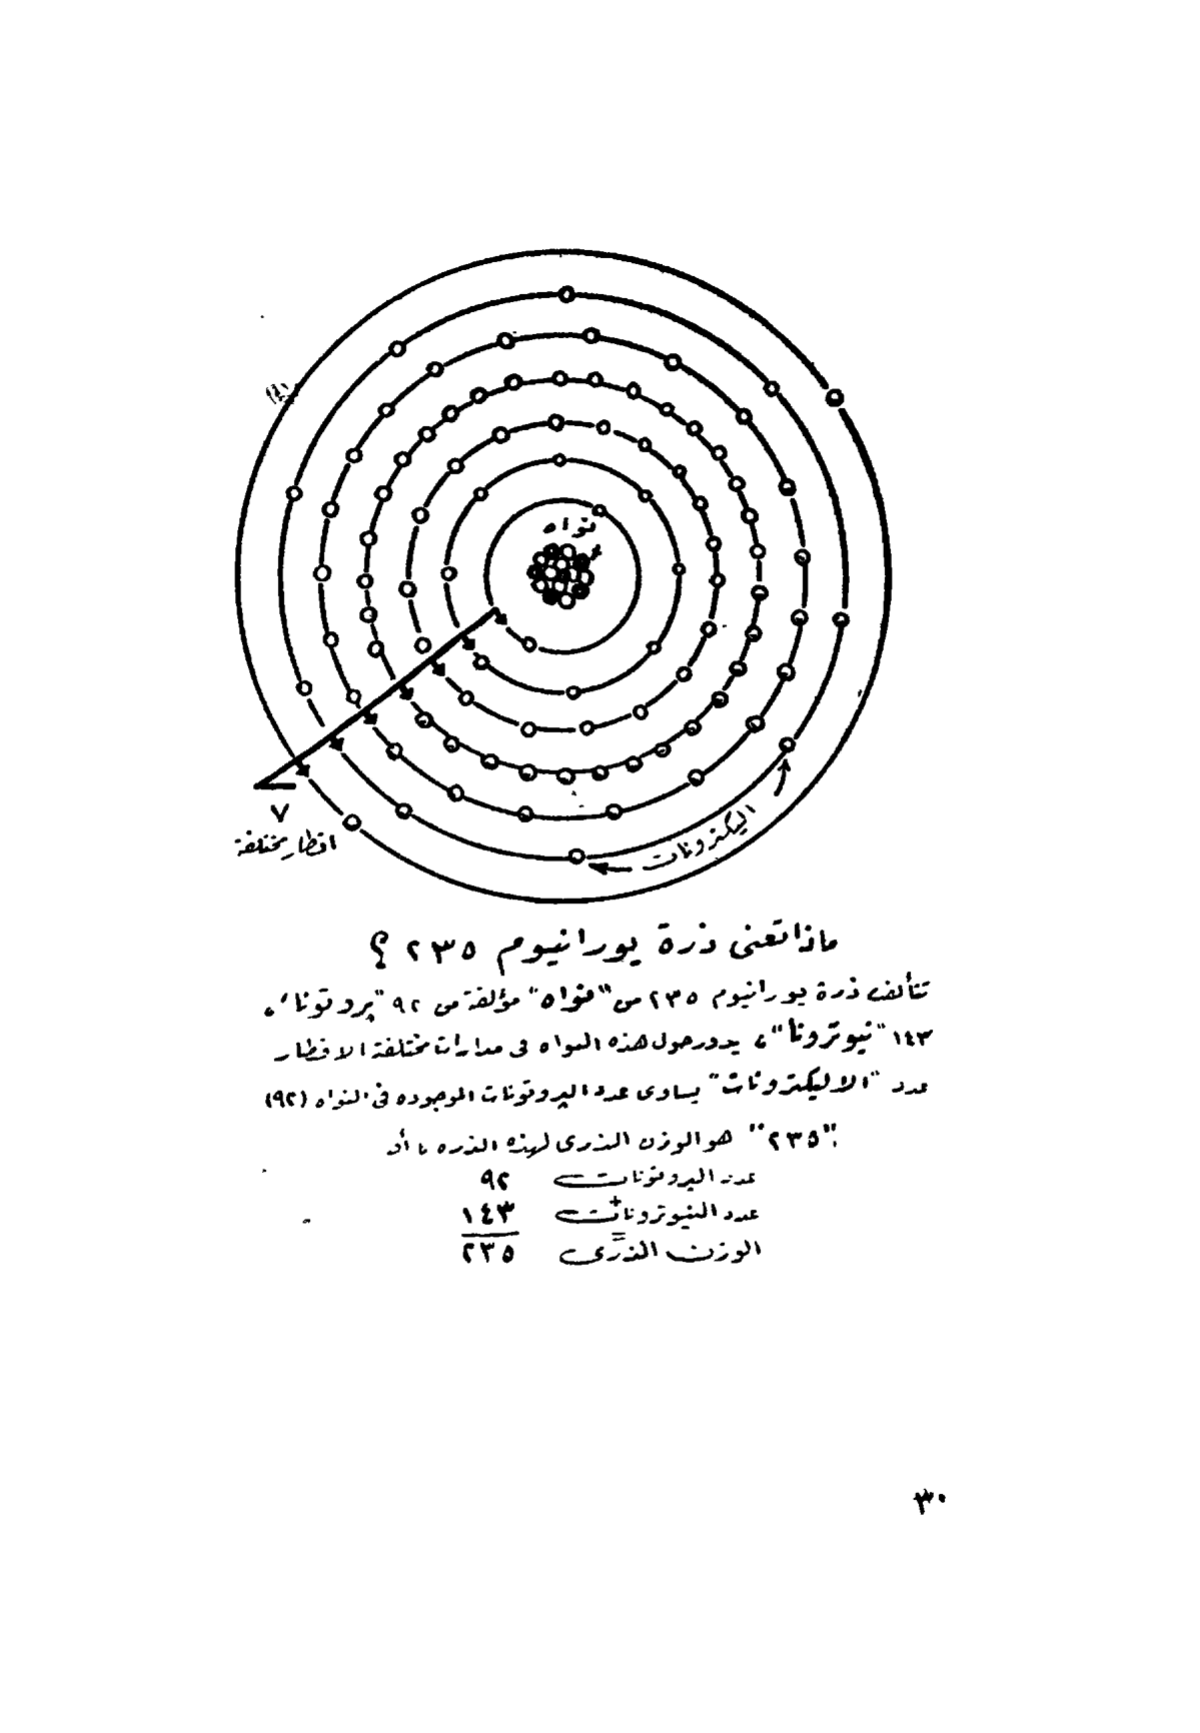 نواه
اليكترونات
٧
اقطار مختلفة
ماذا تعنى ذرة يورانيوم ٢٣٥ ؟
تتألف ذرة يورانيوم ٢٣٥ من "نواه" مؤلفة من ٩٢ "پروتونا"،
١٤٣ "نيوترونا"، يدور حول هذه النواه فى مدارات مختلفة الاقطار
عدد "الاليكترونات" يساوى عدد الپروتونات الموجوده فى النواه (٩٢)
"٢٣٥" هو الوزن الذرى لهذه الذره، أى
عدد البروتونات ٩٢
+
عدد النيوترونات ١٤٣
=
الوزن الذرى ٢٣٥
٣٠